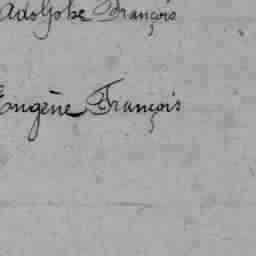 Adolphe François
Eugène François